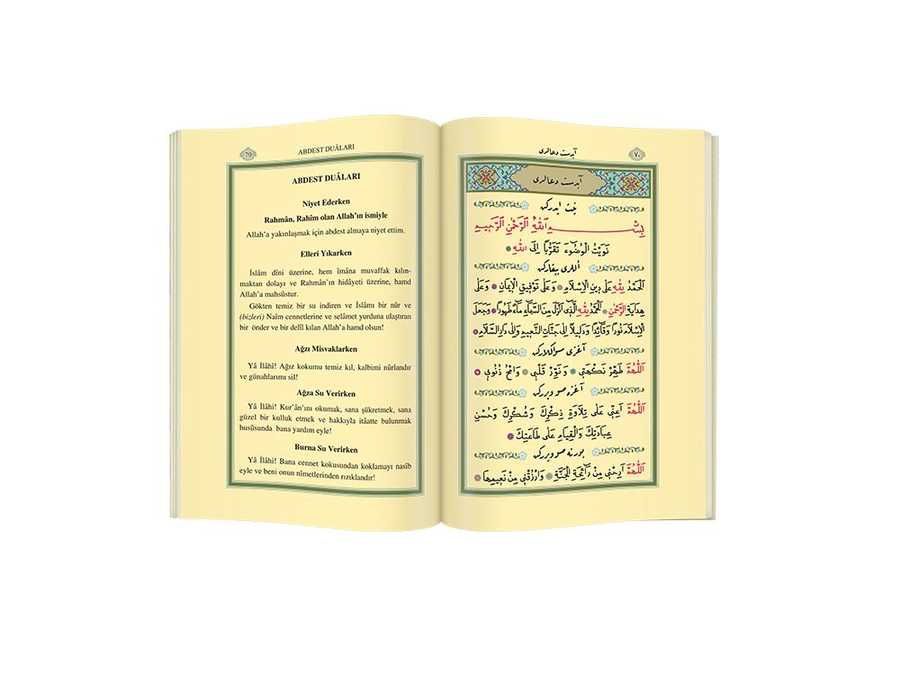 70
ABDEST DUÂLARI
ABDEST DUÂLARI
Niyet Ederken
Rahmân, Rahîm olan Allah'ın ismiyle
Allah'a yakınlaşmak için abdest almaya niyet ettim.
Elleri Yıkarken
İslâm dîni üzerine, hem îmâna muvaffak kılın-
maktan dolayı ve Rahmân'ın hidâyeti üzerine, hamd
Allah'a mahsûstur.
Gökten temiz bir su indiren ve İslâmı bir nûr ve
(bizleri) Naîm cennetlerine ve selâmet yurduna ulaştıran
bir önder ve bir delîl kılan Allah'a hamd olsun!
Ağzı Misvaklarken
Yâ İlâhî! Ağız kokumu temiz kıl, kalbimi nûrlandır
ve günahlarımı sil!
Ağza Su Verirken
Yâ İlâhî! Kur'ân'ını okumak, sana şükretmek, sana
güzel bir kulluk etmek ve hakkıyla itâatte bulunmak
husûsunda bana yardım eyle!
Burna Su Verirken
Yâ İlâhî! Bana cennet kokusundan koklamayı nasîb
eyle ve beni onun nîmetlerinden rızıklandır!
آبدست دعالرى
٧٠
آبدست دعالرى
نيت ايدركن
بِسْمِ اللّٰهِ الرَّحْمٰنِ الرَّحِيمِ
نَوَيْتُ الْوُضُوءَ تَقَرُّبًا اِلَى اللّٰهِ
اللرى ييقاركن
اَلْحَمْدُ لِلّٰهِ عَلٰى دِينِ الْاِسْلَامِ وَعَلٰى تَوْفِيقِ الْاِيمَانِ وَعَلٰى
هِدَايَةِ الرَّحْمٰنِ اَلْحَمْدُ لِلّٰهِ الَّذِى اَنْزَلَ مِنَ السَّمَاءِ مَاءً طَهُورًا وَجَعَلَ
الْاِسْلَامَ نُورًا وَقَائِدًا وَدَلِيلًا اِلٰى جَنَّاتِكَ النَّعِيمِ وَاِلٰى دَارِ السَّلَامِ
آغزى مسواكلاركن
اَللّٰهُمَّ طَهِّرْ نَكْهَتِى وَنَوِّرْ قَلْبِى وَامْحُ ذُنُوبِى
آغزه صو ويرركن
اَللّٰهُمَّ اَعِنِّى عَلٰى تِلَاوَةِ ذِكْرِكَ وَشُكْرِكَ وَحُسْنِ
عِبَادَتِكَ وَالْقِيَامِ عَلٰى طَاعَتِكَ
بورنه صو ويرركن
اَللّٰهُمَّ اَرِحْنِى مِنْ رَائِحَةِ الْجَنَّةِ وَارْزُقْنِى مِنْ نَعِيمِهَا